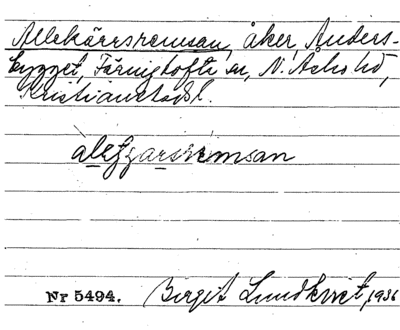 Allekärrsremsan, åker, Anders-
bygget, Färingtofta sn, N. Åsbo hd,
Kristianstads l.
alefzarsremsan
Nr 5494. Birgit Lundkvist, 1936